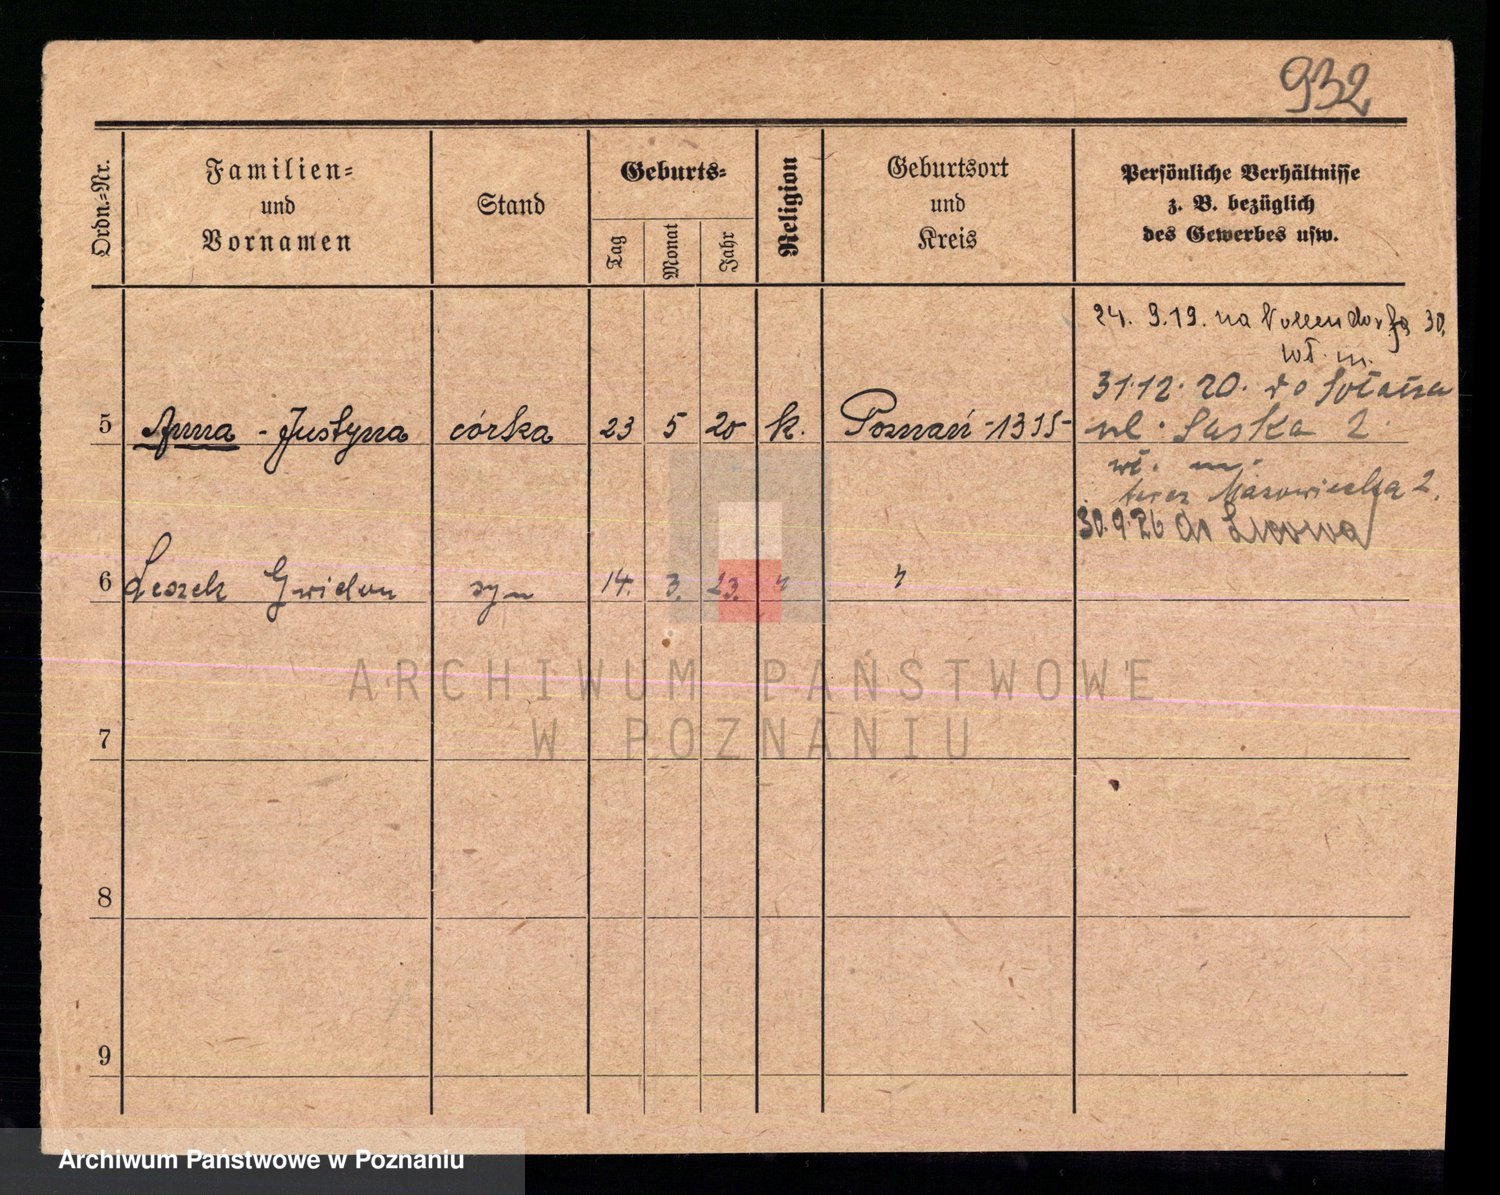 932
Ordn.-Nr.
Familien-
und
Vornamen
Stand
Geburts-
Tag
Monat
Jahr
Religion
Geburtsort
und
Kreis
Persönliche Verhältnisse
z. B. bezüglich
des Gewerbes usw.
24. 9.19. na 30.
wł. m.
31.12.20. do Sołacza
5 Anna - Justyna córka 23 5 20 k. Poznań -1315- ul. Saska 2
wł. m.
teraz Mazowiecka 2.
30.9.26 do Lwowa
6 Leszek Gwidon syn 14. 3. 23. " "
ARCHIWUM PAŃSTWOWE
W POZNANIU
7
8
9
Archiwum Państwowe w Poznaniu